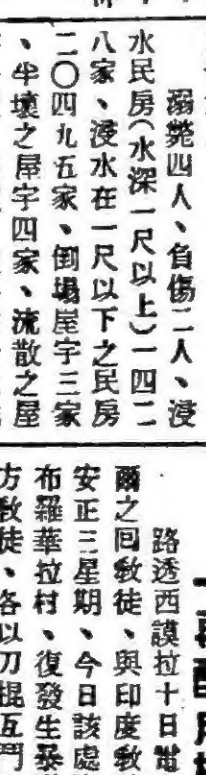 溺斃四人、負傷二人、浸
水民房(水深一尺以上)一四二
八家、浸水在一尺以下之民房
二〇四九五家、倒塌屋宇三家
、半壞之屋宇四家、流散之屋
路透西謨拉十日電
爾之囘敎徒、與印度敎
安正三星期、今日該處
布羅華拉村、復發生暴
方敎徒、各以刀棍互鬥